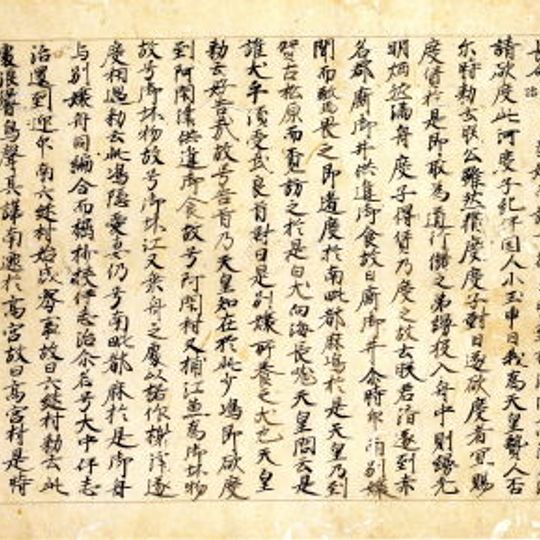 請欲度此河度子紀伊国人小玉申曰我為天皇贄人否
尓時勅云朕公雖然猶度度子對曰遂欲度者宜賜
度賃於是即取為道行儲之弟縵投入舟中則縵光
明炳然満舟度子得賃乃度之故云朕君済遂到赤
石郡廝御井供進御食故曰廝御井尓時印南別嬢
聞而驚畏之即遁度於南毗都麻嶋於是天皇乃到
賀古松原而覓訪之於是白犬向海長吠天皇問云是
誰犬乎須受武良首對曰是別嬢所養之犬也天皇
勅云好告哉故号告首乃天皇知在於此少嶋即欲度
到阿閇津供進御食故号阿閇村又捕江魚為御坏物
故号御坏江又乗舟之處以楉作榭津遂
度相遇勅云此嶋隠愛妻仍号南毗都麻於是御舟
与別嬢舟同編合而梜杪伊志治尓名号大中伊志
治還到印南六継村始成密事故曰六継村勅云此
處浪響鳥聲甚譁南遷於高宮故曰高宮村是時